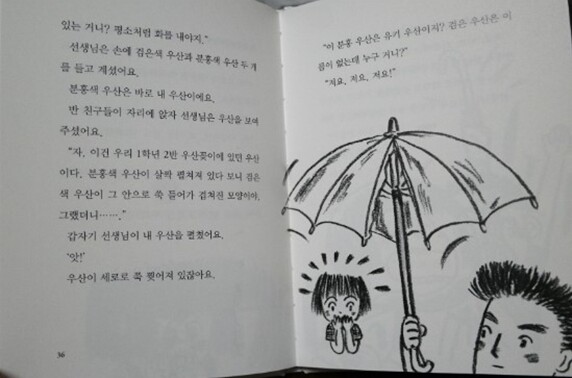 있는 거니? 평소처럼 화를 내야지."
선생님은 손에 검은색 우산과 분홍색 우산 두 개
를 들고 계셨어요.
분홍색 우산은 바로 내 우산이에요.
반 친구들이 자리에 앉자 선생님은 우산을 보여
주셨어요.
"자, 이건 우리 1학년 2반 우산꽂이에 있던 우산
이다. 분홍색 우산이 살짝 펼쳐져 있다 보니 검은
색 우산이 그 안으로 쑥 들어가 겹쳐진 모양이야.
그랬더니……."
갑자기 선생님이 내 우산을 펼쳤어요.
'앗!'
우산이 세로로 쭉 찢어져 있잖아요.
36
"이 분홍 우산은 유키 우산이지? 검은 우산은 이
름이 없는데 누구 거니?"
"저요, 저요, 저요!"